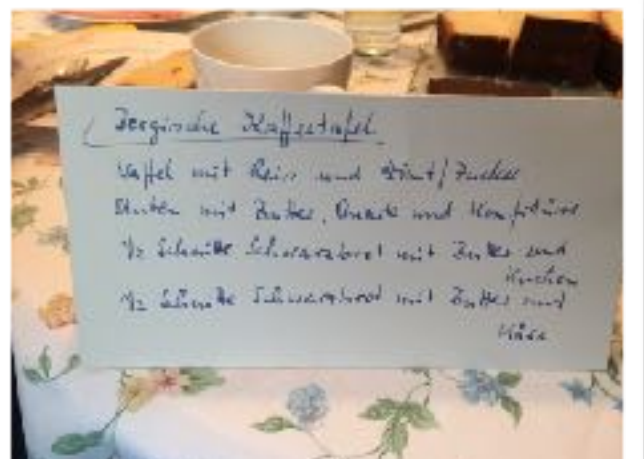 Bergische Kaffeetafel
Waffel mit Reis und Zimt/Zucker
Stuten mit Butter, Quark und Konfitüre
1/2 Scheibe Schwarzbrot mit Butter und
Kuchen
1/2 Scheibe Schwarzbrot mit Butter und
Käse